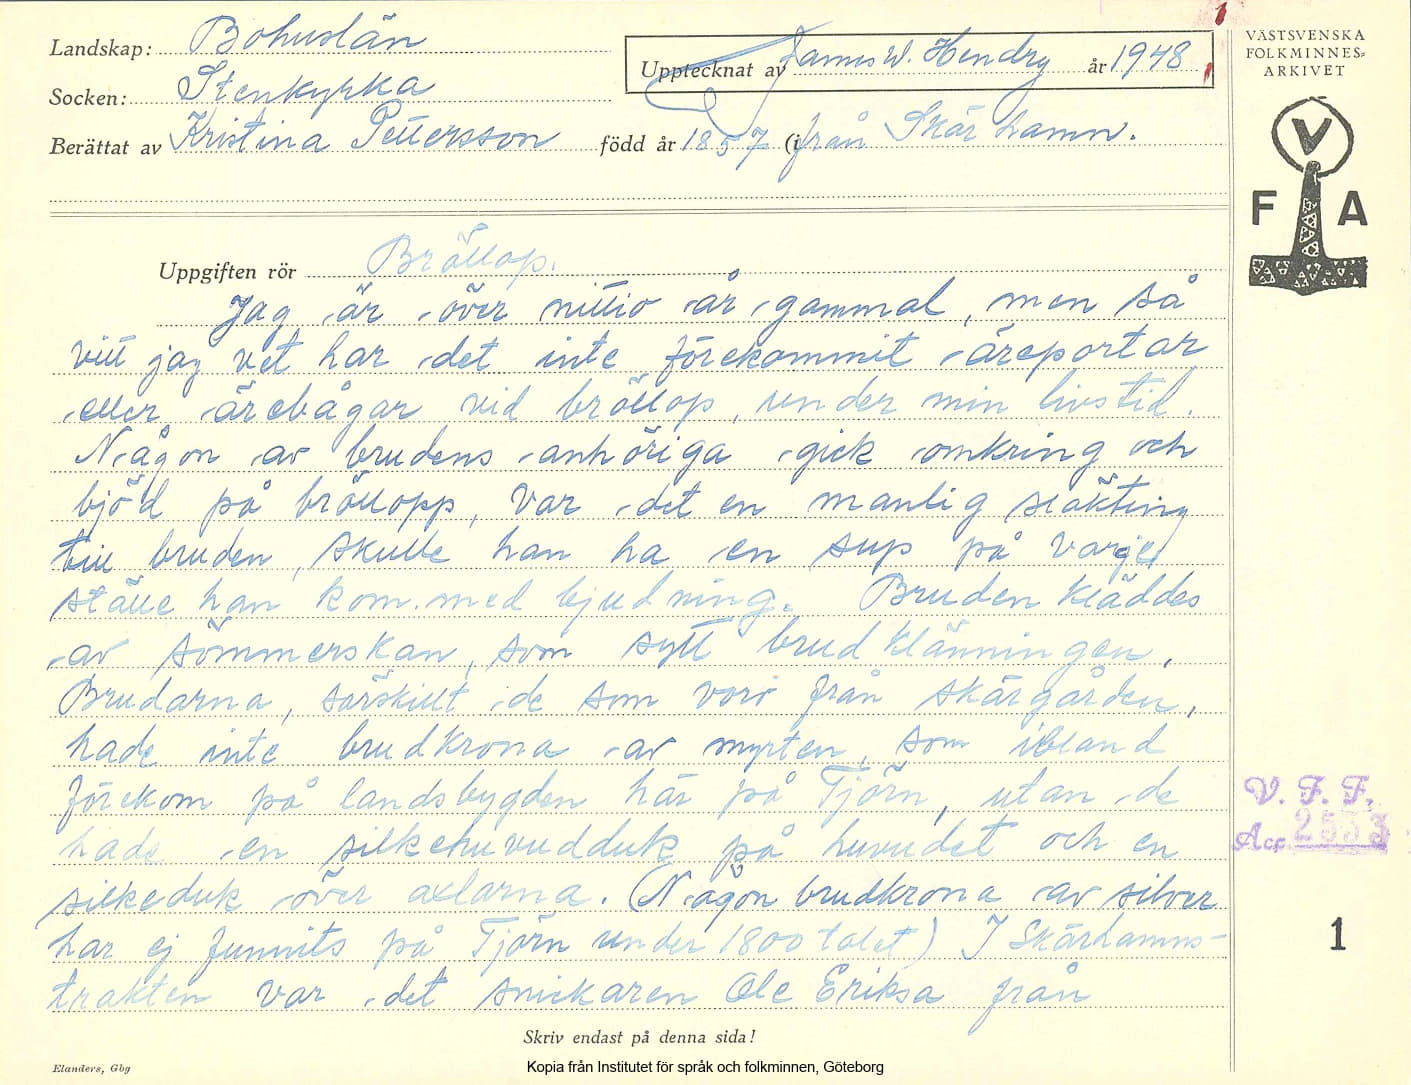 Landskap: Bohuslän
Upptecknat av James W. Hendry år 1948
Socken: Stenkyrka
Berättat av Kristina Pettersson född år 1857 (i från Skärhamn.
Uppgiften rör Bröllop.
Jag är över nittio år gammal, men så
vitt jag vet har det inte förekommit äreportar
eller ärebågar vid bröllop, under min livstid.
Någon av brudens anhöriga gick omkring och
bjöd på bröllopp, var det en manlig släkting
till bruden, skulle han ha en sup på varje
ställe han kom med bjudning. Bruden kläddes
av sömmerskan, som sytt brudklänningen.
Brudarna, särskilt de som voro från skärgården,
hade inte brudkrona av myrten, som ibland
förekom på landsbygden här på Tjörn, utan de
hade en silkehuvudduk på huvudet och en
silkeduk över axlarna. (Någon brudkrona av silver
har ej funnits på Tjörn under 1800 talet) I Skärhamns-
trakten var det snickaren Ole Eriksa från
Skriv endast på denna sida!
Elanders, Gbg
Kopia från Institutet för språk och folkminnen, Göteborg
1
VÄSTSVENSKA
FOLKMINNES-
ARKIVET
V
F A
V. F. F.
Acc. 2533
1